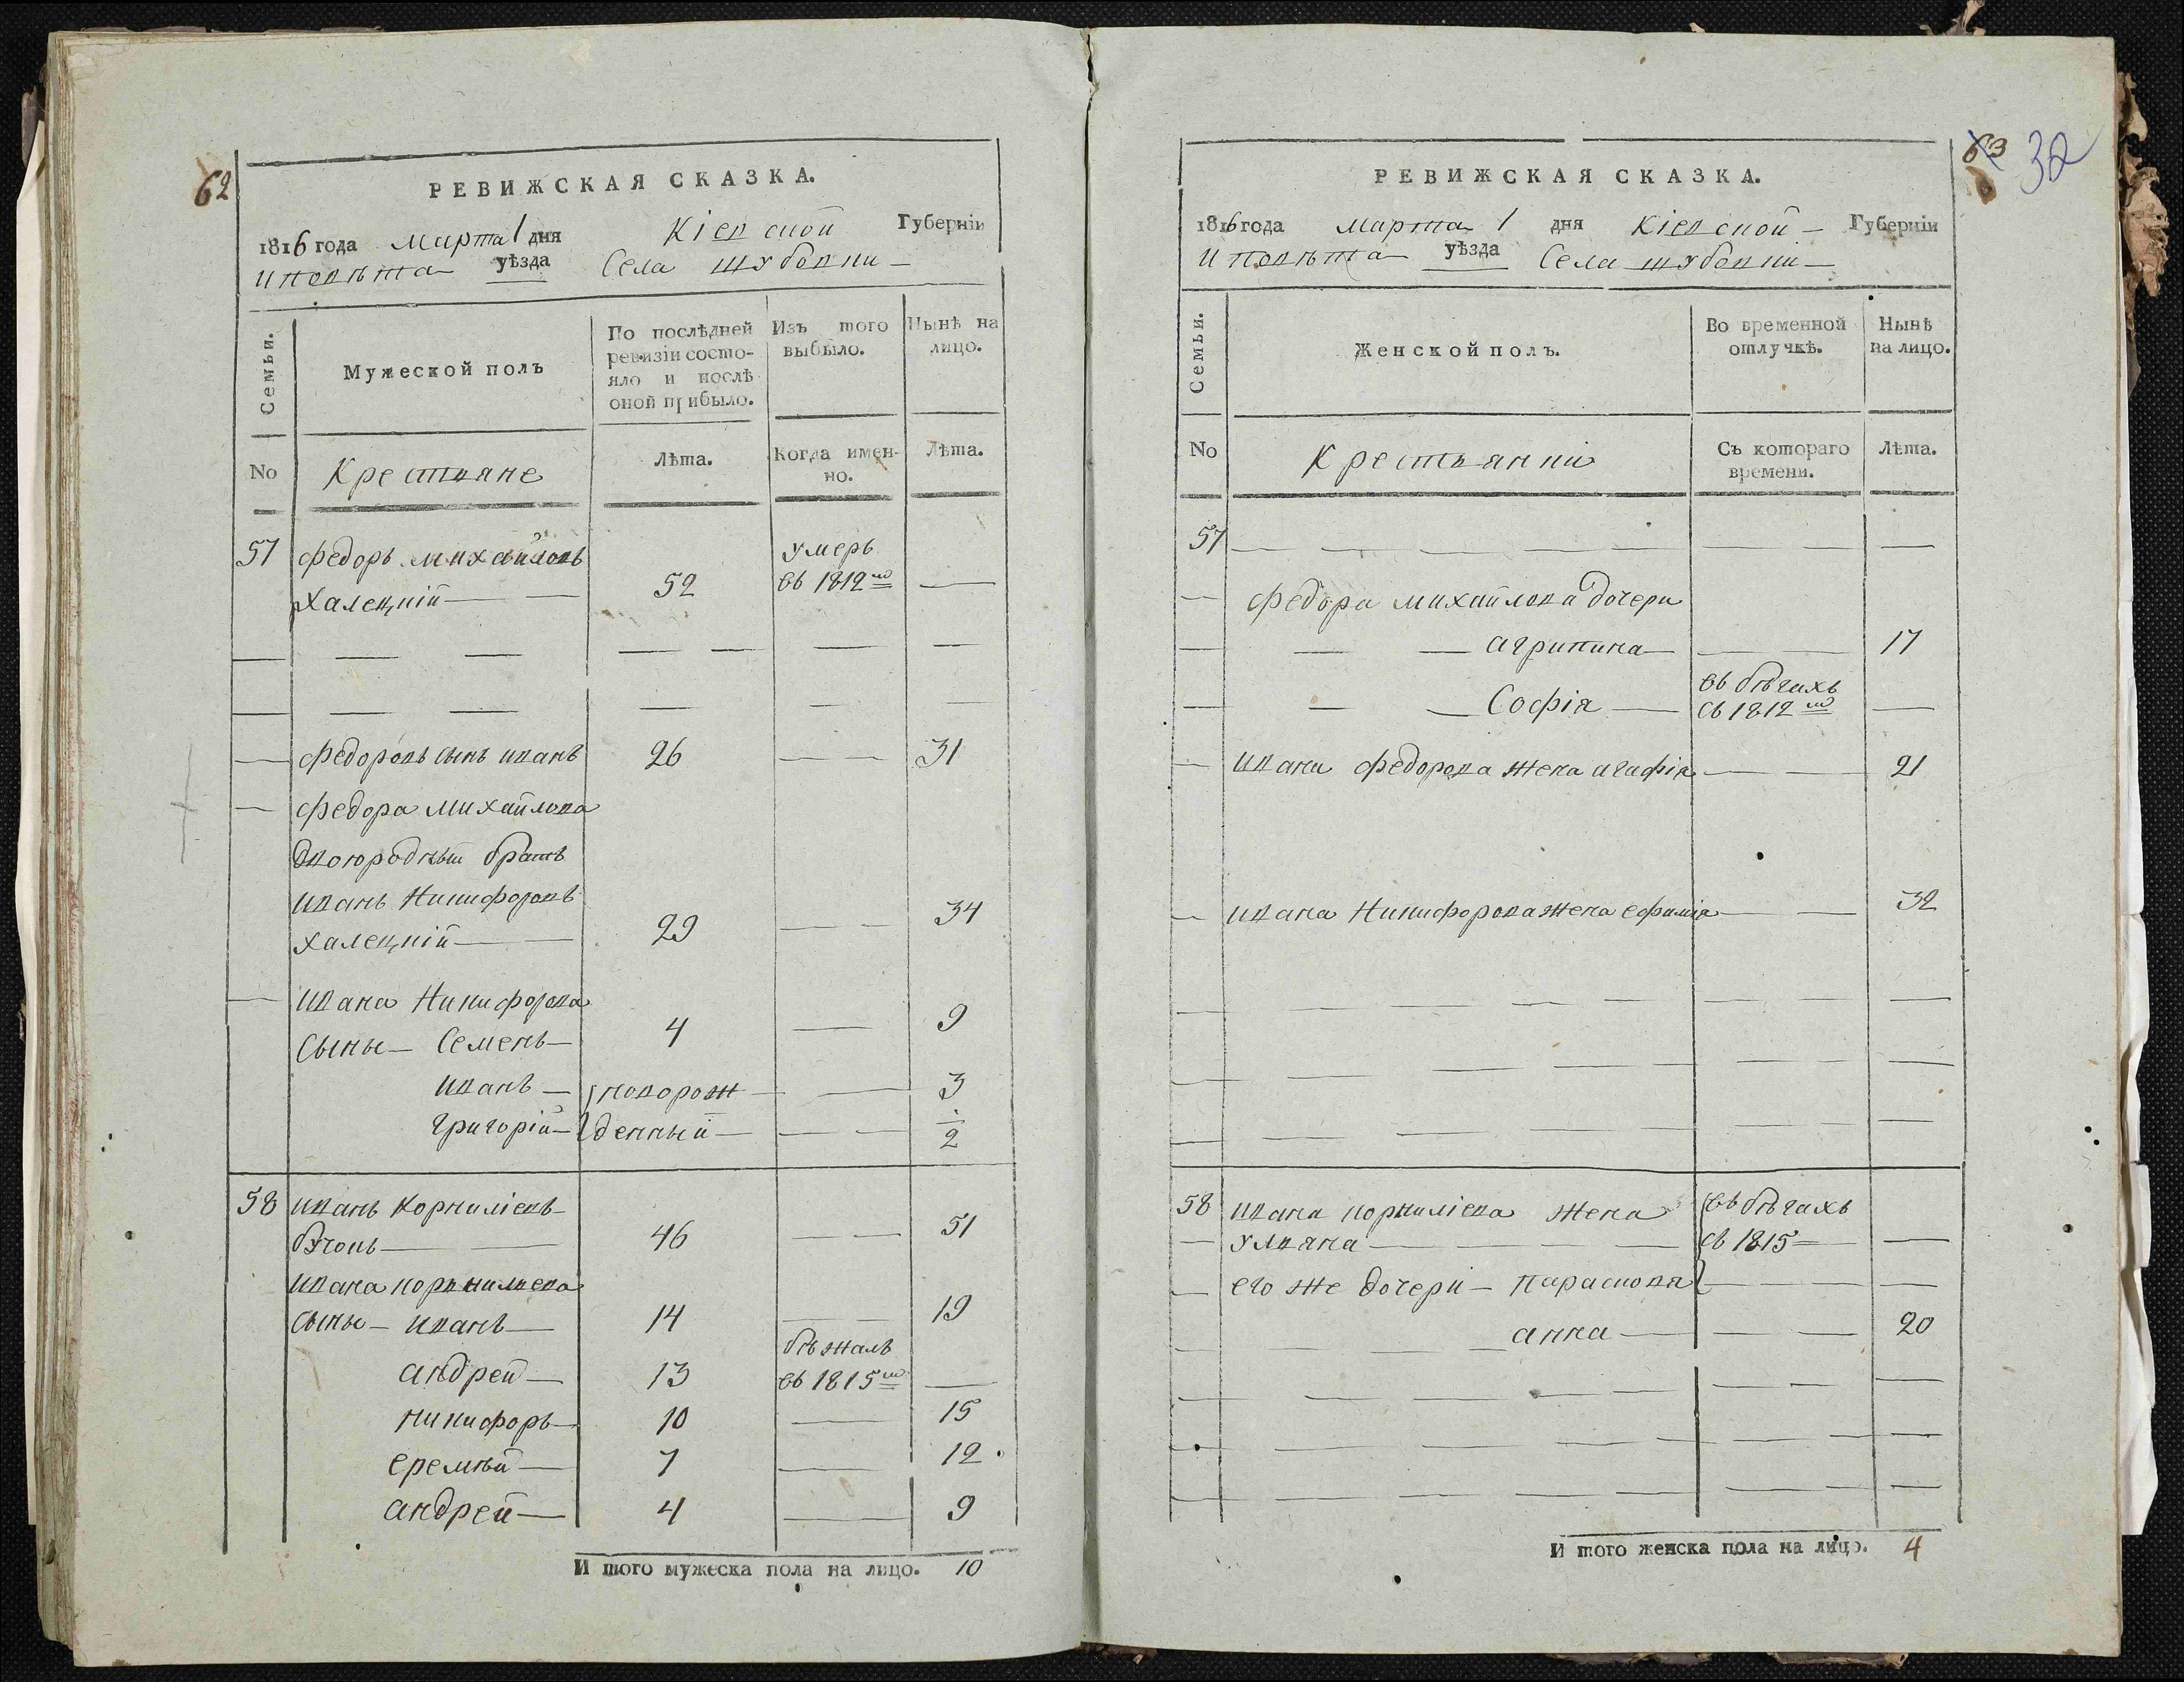 62
РЕВИЖСКАЯ СКАЗКА.
1816 года марта 1 дня Кіевской Губерніи
и повѣта уѣзда Села шубовки
Семьи.
Мужеской полъ
По послѣдней ревизіи состо-
яло и послѣ
оной прибыло.
Изъ того
выбыло.
Нынѣ на
лицо.
No
Крестьяне
Лѣта.
Когда имен-
но.
Лѣта.
57 федоръ михайловъ
халецкій 52 умеръ въ 1812го
федоровъ сынъ иванъ 26 31
федора михайлова
двоюродный братъ
иванъ Никифоровъ
халецкій 29 34
ивана Никифорова
сыны Семенъ 4 9
иванъ новорож 3
григорій денный 1/2
58 иванъ Корниліевъ
46 51
ивана корнильева
сыны иванъ 14 19
андрей 13 бѣжалъ въ 1815го
никифоръ 10 15
еремѣй 7 12
андрей 4 9
И того мужеска пола на лицо. 10
63 32
РЕВИЖСКАЯ СКАЗКА.
1816 года марта 1 дня Кіевской Губерніи
и повѣта уѣзда Села шубовки
Семьи.
Женской полъ.
Во временной
отлучкѣ.
Нынѣ
на лицо.
No
Крестьянки
Съ котораго
времени.
Лѣта.
57
федора михайлова дочери
агрипина 17
Софія въ бѣгахъ съ 1812го
ивана федорова жена агафія 21
ивана Никифорова жена ефимія 32
58 ивана корниліева жена въ бѣгахъ
ульяна съ 1815
его же дочери парасковя
анна 20
И того женска пола на лицо. 4